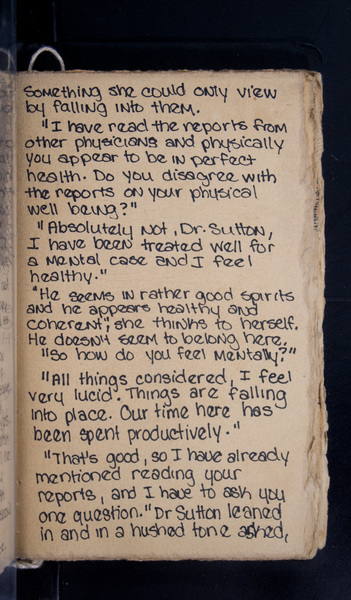 Something she could only view
by falling into them.
"I have read the reports from
other physicians and physically
you appear to be in perfect
health. Do you disagree with
the reports on your physical
well being?"
"Absolutely not, Dr. Sutton,
I have been treated well for
a mental case and I feel
healthy."
"He seems in rather good spirits
and he appears healthy and
coherent", she thinks to herself.
He doesn't seem to belong here.
"So how do you feel mentally?"
"All things considered, I feel
very lucid. Things are falling
into place. Our time here has
been spent productively."
"That's good, so I have already
mentioned reading your
reports, and I have to ask you
one question." Dr Sutton leaned
in and in a hushed tone asked,